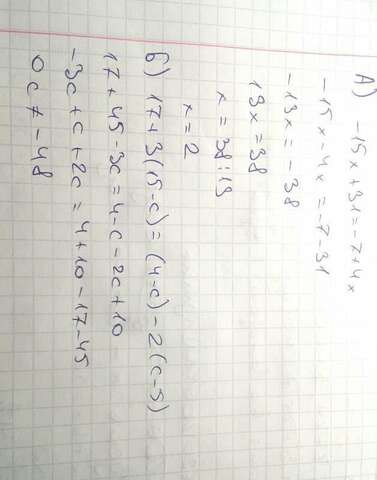 А) -15x+31=-7+4x
-15x-4x=-7-31
-19x=-38
19x=38
x=38:19
x=2
б) 17+3(15-c)=(4-c)-2(c-5)
17+45-3c=4-c-2c+10
-3c+c+2c=4+10-17-45
0c≠-48